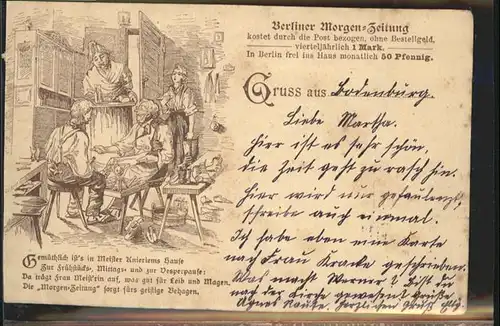 Berliner Morgen-Zeitung
kostet durch die Post bezogen, ohne Bestellgeld,
vierteljährlich 1 Mark.
In Berlin frei ins Haus monatlich 50 Pfennig.
Gruss aus Bodenburg.
Liebe Martha.
Hier ist es sehr schön,
die Zeit geht zu rasch hin.
Hier wird nur gefaulenzt,
schreibe auch einmal.
Ich habe eben eine Karte
nach Frau Kracke geschrieben.
Was macht Werner? Bist du
nach der Kirche gewesen? Grüße
Agnes Herzlichen Gruß
Gemüthlich ist's in Meister Knieriems Hause
Zur Frühstücks-, Mittags- und zur Vesperpause:
Da trägt Frau Meist'rin auf, was gut für Leib und Magen.
Die „Morgen-Zeitung" sorgt fürs geistige Behagen.